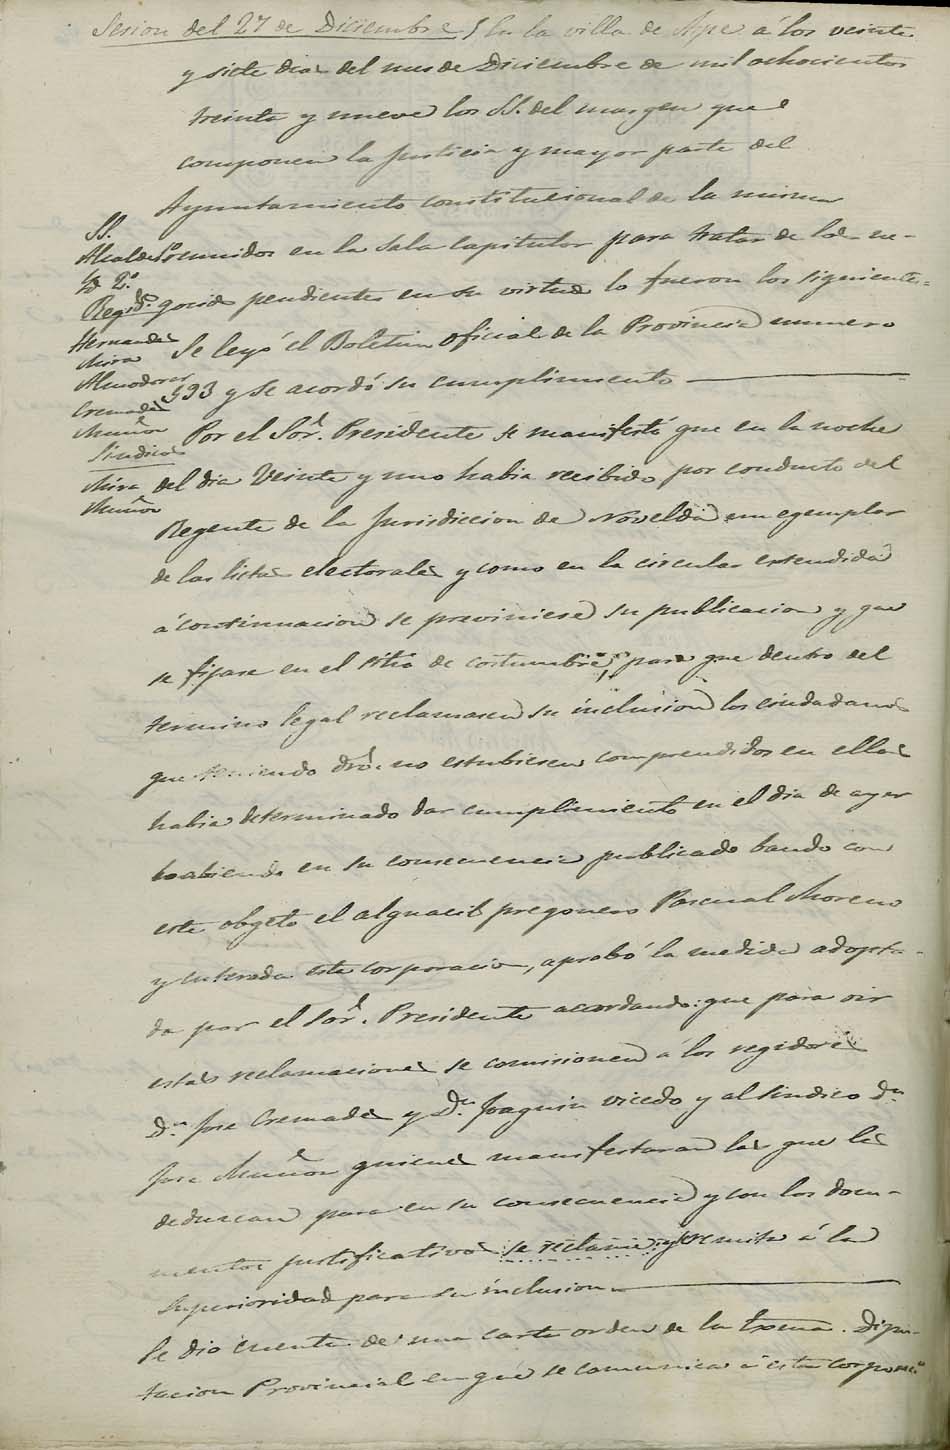 Sesion del 27 de Diciembre / En la villa de Aspe á los veinte
y siete dias del mes de Diciembre de mil ochocientos
treinta y nueve los SS. del margen que
componen la Justicia y mayor parte del
Ayuntamiento constitucional de la misma
SS.
Alcaldes
Yd 2.º
Regid.s
Hernandez
Mira
Almodovar
Cremades
Muñoz
Sindicos
Mira
Muñoz
reunidos en la Sala Capitular para tratar de los ne-
gocios pendientes en su virtud lo fueron los siguientes=
Se leyó el Boletin oficial de la Provincia numero
593 y se acordó su cumplimiento
Por el Sor. Presidente se manifestó que en la noche
del dia Veinte y uno habia recibido por conducto del
Regente de la Jurisdiccion de Novelda un egemplar
de las listas electorales y como en la circular estendida
á continuacion se previniese su publicacion y que
se fijase en el sitio de costumbre, para que dentro del
termino legal reclamasen su inclusion los ciudadanos
que teniendo dro. no estubiesen comprendidos en ellas
habia determinado dar cumplimiento en el dia de ayer
habiendo en su consecuencia publicado bando con
este obgeto el alguacil pregonero Pascual Moreno
y enterada esta corporacion, aprobó la medida adopta-
da por el Sor. Presidente acordando: que para oir
estas reclamaciones se comisionen á los regidores
Dn. Jose Cremades y Dn. Joaquin Vicedo y al Sindico Dn.
Jose Muñoz quienes manifestaran las que les
deduzcan para en su consecuencia y con los docu-
mentos justificativos se reclame y remita á la
Superioridad para su inclusion
Se dio cuenta de una carta orden de la Exma. Dipu-
tacion Provincial en que se comunica á esta corporacn.